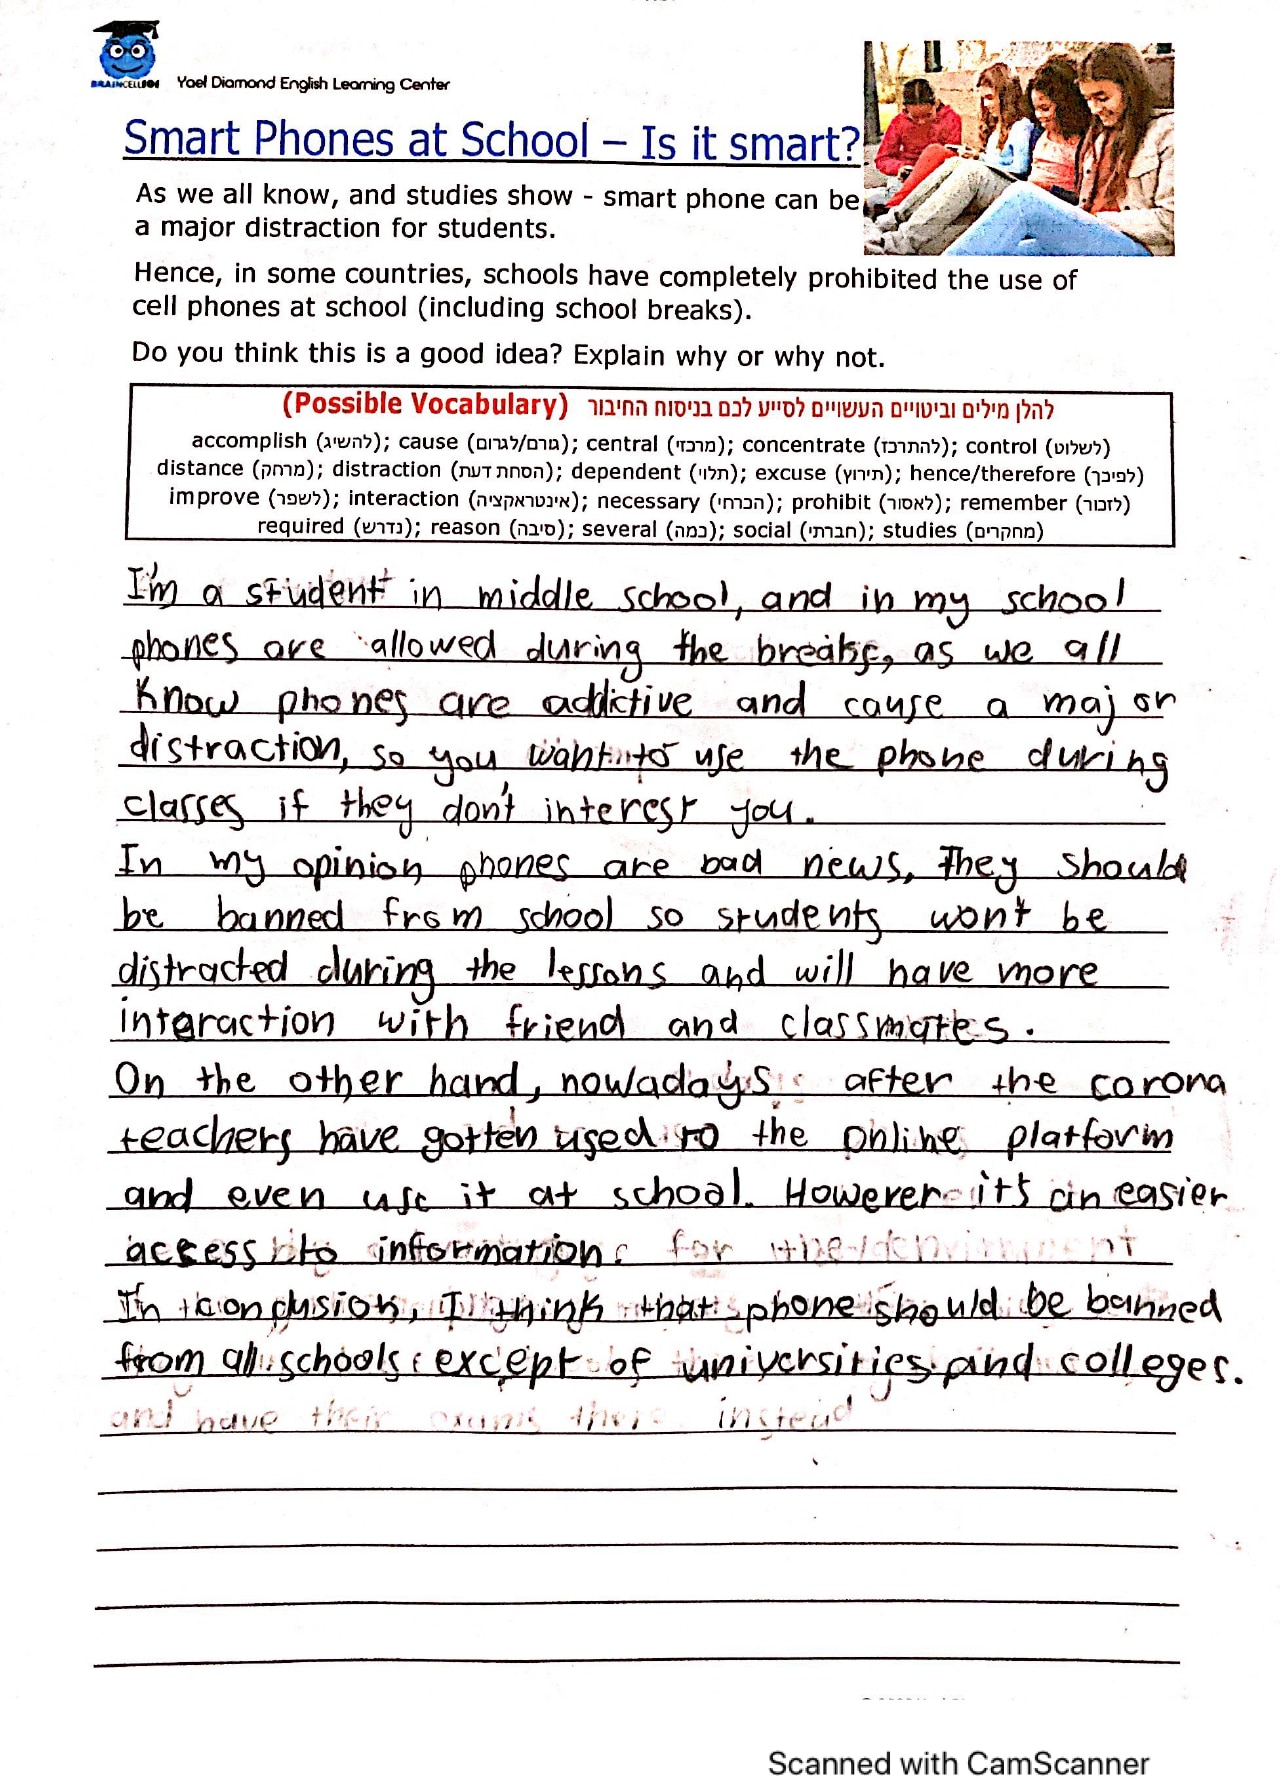 BRAINCELLS101 Yael Diamond English Learning Center
Smart Phones at School – Is it smart?
As we all know, and studies show - smart phone can be
a major distraction for students.
Hence, in some countries, schools have completely prohibited the use of
cell phones at school (including school breaks).
Do you think this is a good idea? Explain why or why not.
להלן מילים וביטויים העשויים לסייע לכם בניסוח החיבור (Possible Vocabulary)
accomplish (להשיג); cause (גורם/לגרום); central (מרכזי); concentrate (להתרכז); control (לשלוט)
distance (מרחק); distraction (הסחת דעת); dependent (תלוי); excuse (תירוץ); hence/therefore (לפיכך)
improve (לשפר); interaction (אינטראקציה); necessary (הכרחי); prohibit (לאסור); remember (לזכור)
required (נדרש); reason (סיבה); several (כמה); social (חברתי); studies (מחקרים)
I'm a student in middle school, and in my school
phones are allowed during the breaks, as we all
know phones are addictive and cause a major
distraction, so you want to use the phone during
classes if they don't interest you.
In my opinion phones are bad news, They should
be banned from school so students won't be
distracted during the lessons and will have more
interaction with friend and classmates.
On the other hand, nowadays after the corona
teachers have gotten used to the online platform
and even use it at school. However it's an easier
access to information. for the
In conclusion, I think that phone should be banned
from all schools except of universities and colleges.
and have their exams there instead
Scanned with CamScanner